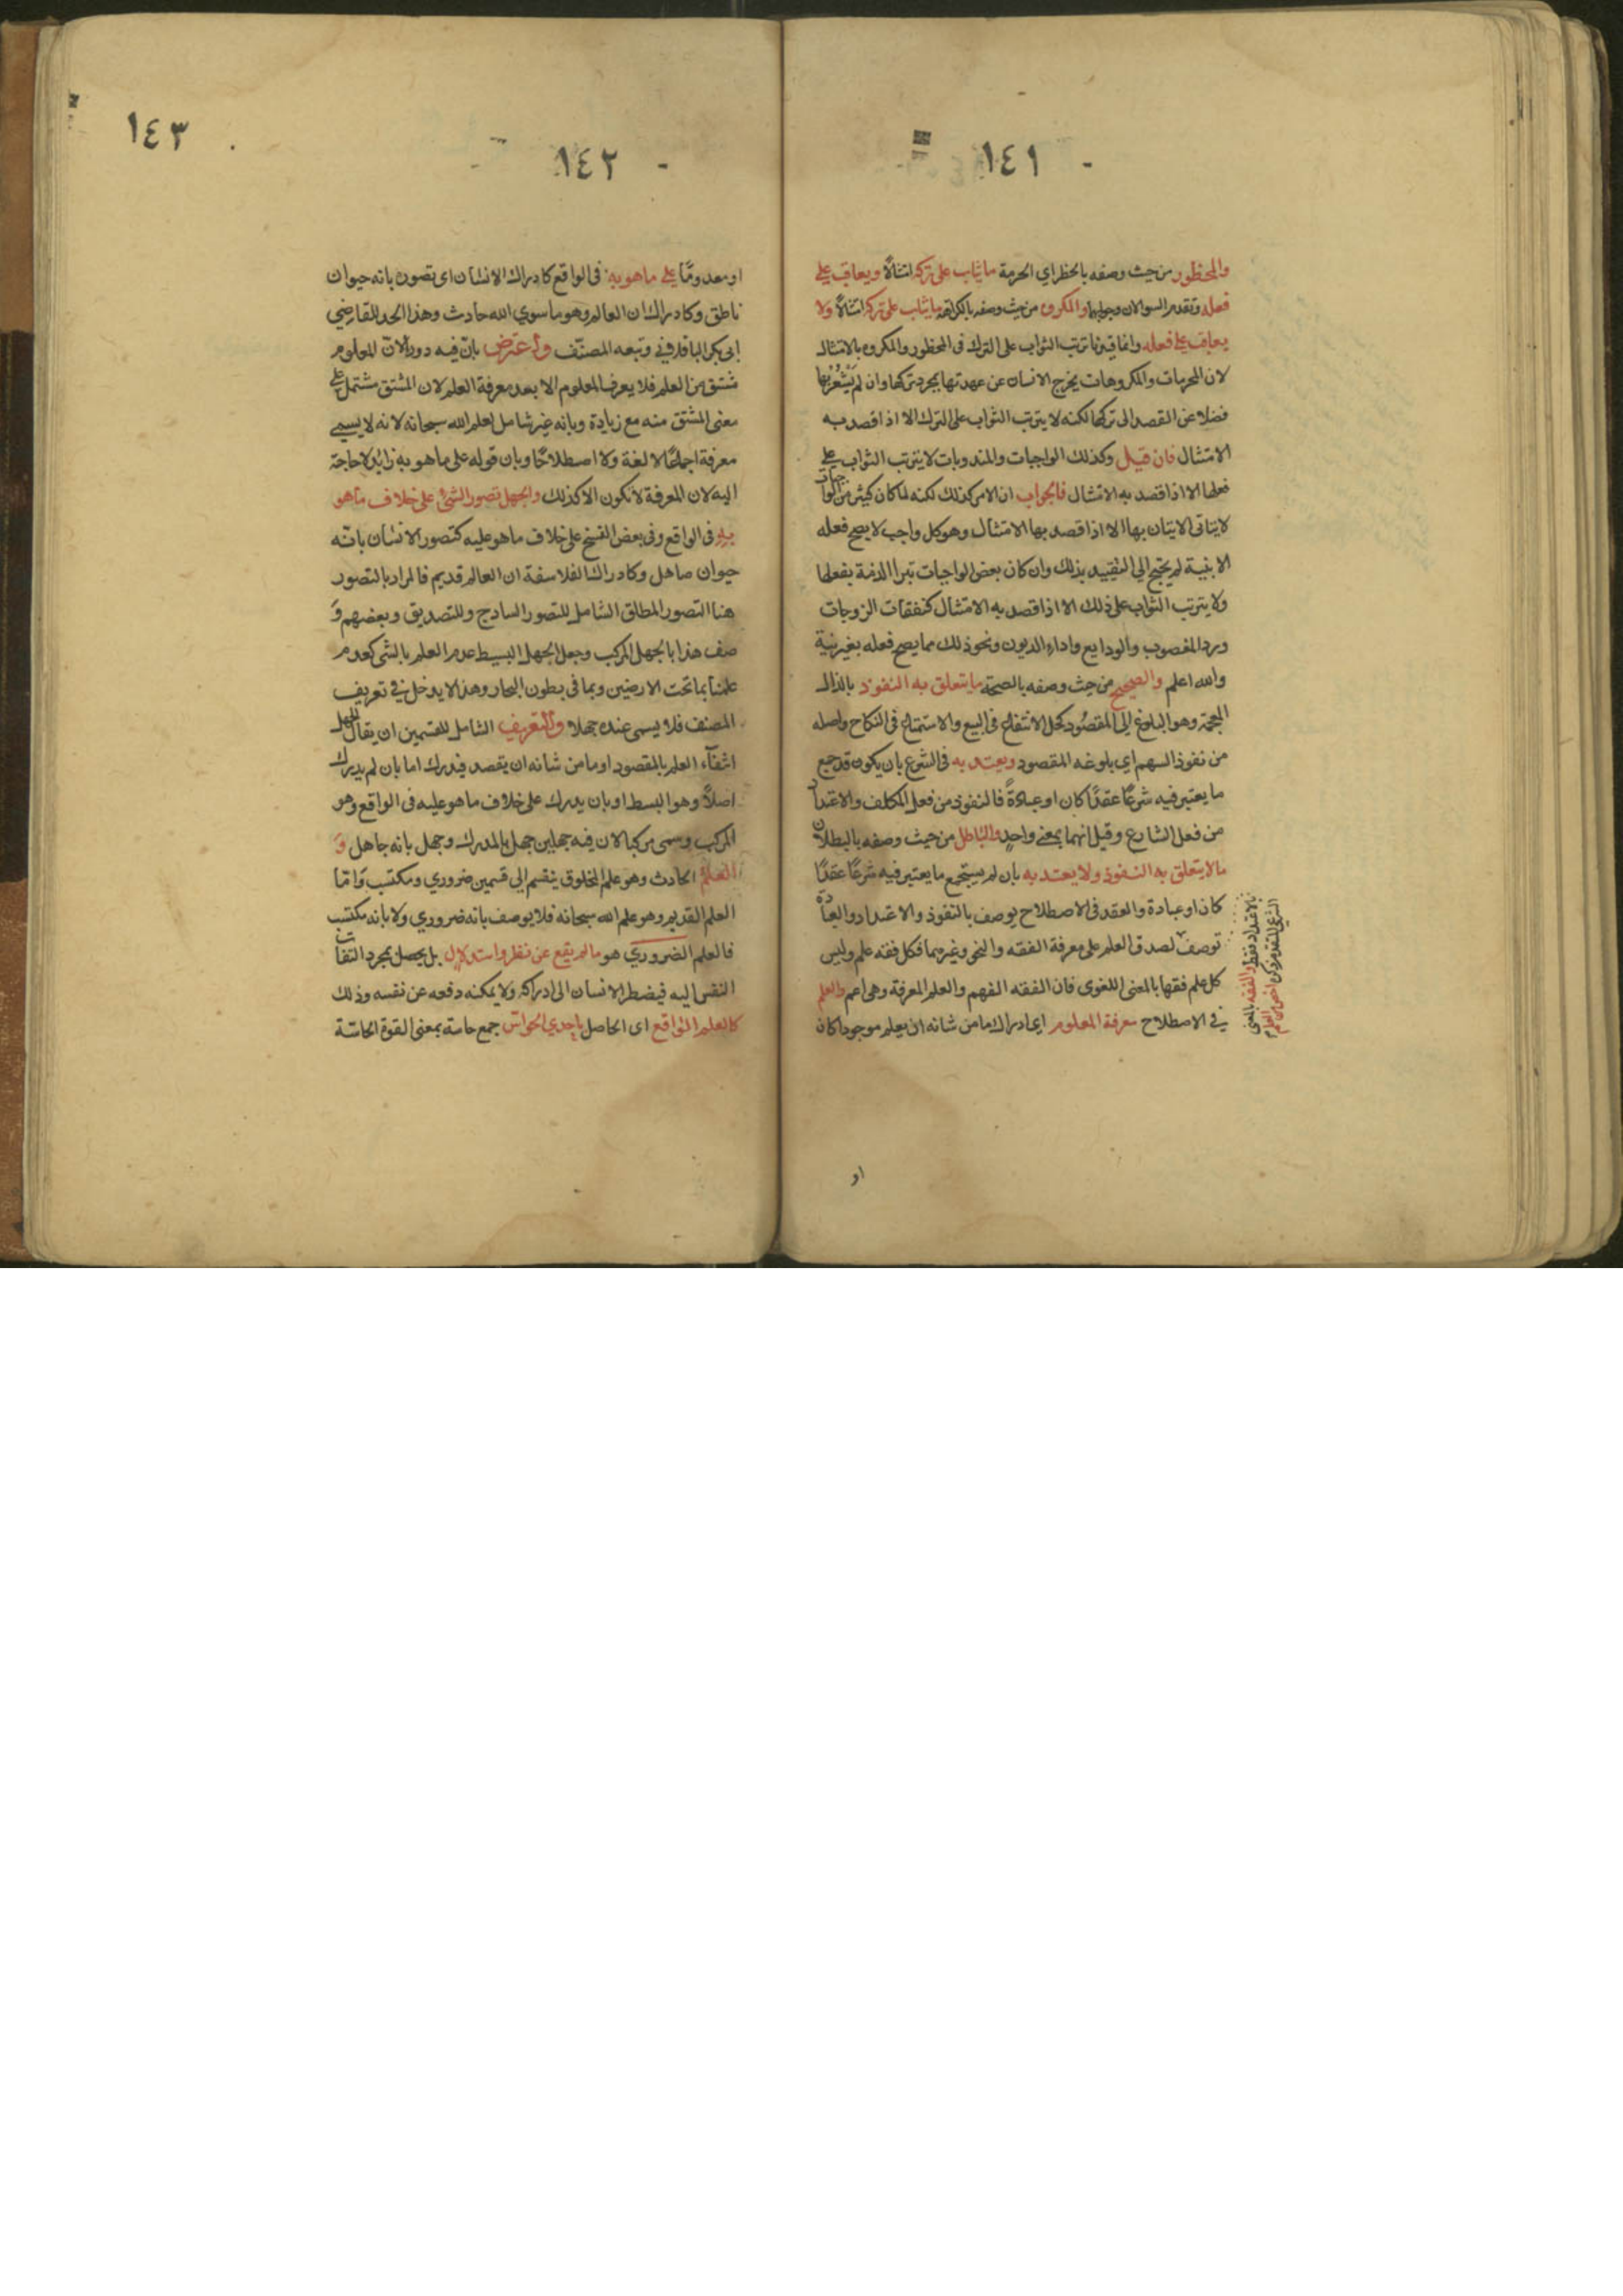 ١٤١
والمحظور من حيث وصفه بالحظر اي الحرمة ما يثاب على تركه امتثالًا ويعاقب على
فعله وتقدم السوالان وجوابهما والمكروه من حيث وصفه بالكراهة ما يثاب على تركه امتثالًا ولا
يعاقب على فعله وانما قيدنا ترتب الثواب على الترك في المحظور والمكروه بالامتثال
لان المحرمات والمكروهات يخرج الانسان عن عهدتها بمجرد تركها وان لم يَشْعُرْ بها
فضلا عن القصد الى تركها لكنه لا يترتب الثواب على الترك الا اذا قصد به
الامتثال فان قيل وكذلك الواجبات والمندوبات لا يترتب الثواب على
فعلها الا اذا قصد به الامتثال فالجواب ان الامر كذلك لكنه لما كان كثير من الواجبات
لا يتاتى الاتيان بها الا اذا قصد بها الامتثال وهو كل واجب لا يصح فعله
الا بنية لم يحتج الى التقييد بذلك وان كان بعض الواجبات تبرا الذمة بفعلها
ولا يترتب الثواب على ذلك الا اذا قصد به الامتثال كنفقات الزوجات
ورد المغصوب والودايع واداء الديون ونحو ذلك مما يصح فعله بغير نية
والله اعلم والصحيح من حيث وصفه بالصحة ما يتعلق به النفوذ بالذال
المعجمة وهو البلوغ الى المقصُود كحل الانتفاع في البيع والاستمتاع في النكاح واصله
من نفوذ السهم اي بلوغه المقصود ويعتد به في الشرع بان يكون قد جمع
ما يعتبر فيه شرعًا عقدًا كان او عبادةً فالنفوذ من فعل المكلف والاعتداد
من فعل الشارع وقيل انهما بمعنى واحدٍ والباطل من حيث وصفه بالبطلان
ما لا يتعلق به النفوذ ولا يعتد به بان لم يستجمع ما يعتبر فيه شرعًا عقدًا
كان او عبادة والعقد في الاصطلاح يوصف بالنفوذ والاعتداد والعبادة
توصف لصدق العلم على معرفة الفقه والنحو وغيرهما فكل فقه علم وليس
كل علم فقها بالمعنى اللغوى فان الفقه الفهم والعلم المعرفة وهي اعم والعلم
في الاصطلاح معرفة المعلوم اي ادراك ما من شانه ان يعلم موجودا كان
بالاعتداد فقط والفقه بالمعنى
الشرعي المتقدم ذكره اخص من العلم
او
١٤٢
او معدومًا على ما هو به في الواقع كادراك الانسان اى تصوره بانه حيوان
ناطق وكادراك ان العالم وهو ما سوي الله حادث وهذا الحد للقاضي
ابى بكر الباقلاني وتبعه المصنّف وأعترض بانّ فيه دورًا لانّ المعلوم
مشتق من العلم فلا يعرف المعلوم الا بعد معرفة العلم لان المشتق مشتمل على
معنى المشتق منه مع زيادة وبانه غير شامل لعلم الله سبحانه لانه لا يسمى
معرفة اجماعًا لا لغة ولا اصطلاحًا وبان قوله على ما هو به زايد لا حاجة
اليه لان المعرفة لا تكون الا كذلك والجهل تصور الشئ على خلاف ما هو
بهِ في الواقع وفي بعض النسخ على خلاف ما هو عليه كتصور الانسان بانّه
حيوان صاهل وكادراك الفلاسفة ان العالم قديم فالمراد بالتصور
هنا التصور المطلق الشامل للتصور السادج وللتصديق وبعضهم وَ
صف هذا بالجهل المركب وجعل الجهل البسيط عدم العلم بالشى كعدم
علمنا بما تحت الارضين وبما فى بطون البحار وهذا لا يدخل في تعريف
المصنف فلا يسمى عنده جهلا والتعريف الشامل للقسمين ان يقال الجهل
انتفآء العلم بالمقصود او ما من شانه ان يقصد فيدرك اما بان لم يدرك
اصلاً وهو البسط او بان يدرك على خلاف ما هو عليه في الواقع وهو
المركب وسمى مركبا لان فيه جهلين جهل بالمدرك وجهل بانه جاهل وَ
العلمُ الحادث وهو علم المخلوق ينقسم الى قسمين ضروري ومكتسب وَامّا
العلم القديم وهو علم الله سبحانه فلا يوصف بانه ضروري ولا بانه مكتسب
فالعلم الضروري هو ما لم يقع عن نظر واستدلالٍ بل يحصل بمجرد التفات
النفس اليه فيضطر الانسان الى ادراكه ولا يمكنه دفعه عن نفسه وذلك
كالعلم الواقع اى الحاصل باحدي الحواس جمع حاسة بمعنى القوة الحاسّة
١٤٣